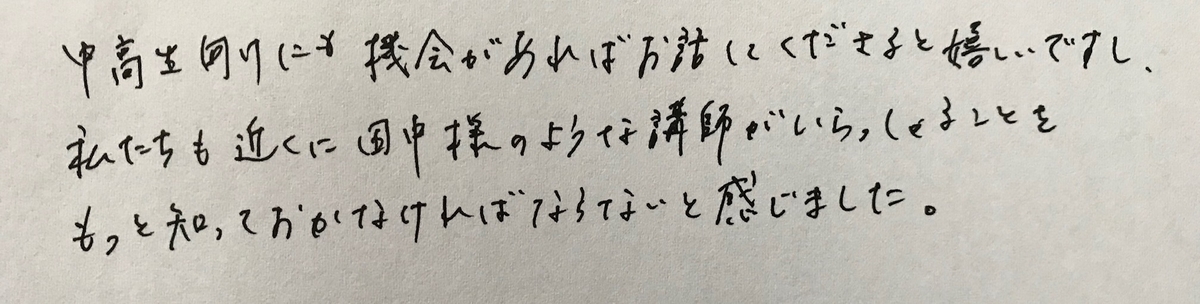 中高生向けにも機会があればお話しくださると嬉しいですし、
私たちも近くに田中様のような講師がいらっしゃることを
もっと知っておかなければならないと感じました。